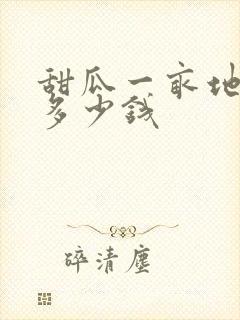 甜瓜一亩地
多少钱
碎清尘